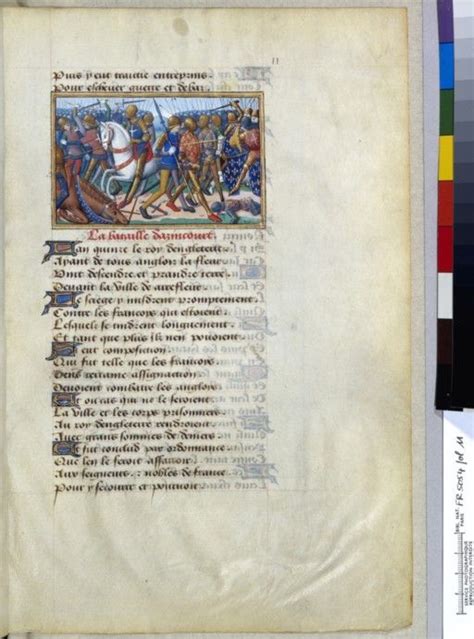 11
Puis y eut traittie entreprins
Pour eschever guerre et debat
La bataille dazincourt
Lan quinze le roy dengleterre
Ayant de tous anglois la fleur
Vint descendre et prandre terre
Devant la ville de
Le siege y misdrent promptement
Contre les francoys qui estoient
Lesquelz se tindrent longuement
Et tant que plus ilz nen povoient
composicion
fut telle que les francois
Dens certaine assignacion
Devoient combatre les anglois
Et ou cas qui ne le feroient
La ville et les corps prisonniers
Au roy dengleterre rendroient
Avec grans sommes de deniers
fut conclud par ordonnance
Que len le feroit assavoir
Aux seigneurs nobles de france
Pour y secourir et pourvoir
BIBL. NAT. PARIS
FR 5054 fol 11
SERVICE PHOTOGRAPHIQUE
REPRODUCTION INTERDITE